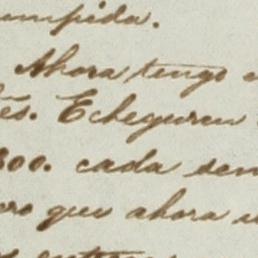 umpida.
Ahora tengo
És. Echeguren
300. cada sem
ero que ahora